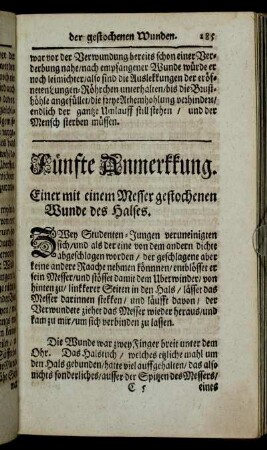 der gestochenen Wunden. 185
war vor der Verwundung bereits schon einer Ver-
derbung nahe / nach empfangener Wunde würde er
noch leimichter / also sind die Ausleckungen der eröf-
neten Lungen-Röhrchen unverhalten / bis die Brust-
höhle angefüllet / die freye Athemhohlung verhindern /
endlich der gantz Umlauff still stehen / und der
Mensch sterben müssen.
Fünfte Anmerkkung.
Einer mit einem Messer gestochenen
Wunde des Halses.
ZWey Studenten-Jungen veruneinigten
sich / und als der eine von dem andern dichte
abgeschlagen worden / der geschlagene aber
keine andere Raache nehmen könnnen / entblösset er
sein Messer / und stösset damit dem Überwinder / von
hinten zu / linkkerer Seiten in den Hals / lässet das
Messer darinnen stekken / und läufft davon / der
Verwundete ziehet das Messer wieder heraus / und
kam zu mir / um sich verbinden zu lassen.
Die Wunde war zwey Finger breit unter dem
Ohr. Das Halstuch / welches etzliche mahl um
den Hals gebunden / hatte viel auffgehalten / das also
nichts sonderliches / ausser der Spitzen des Messers /
C 5 eines